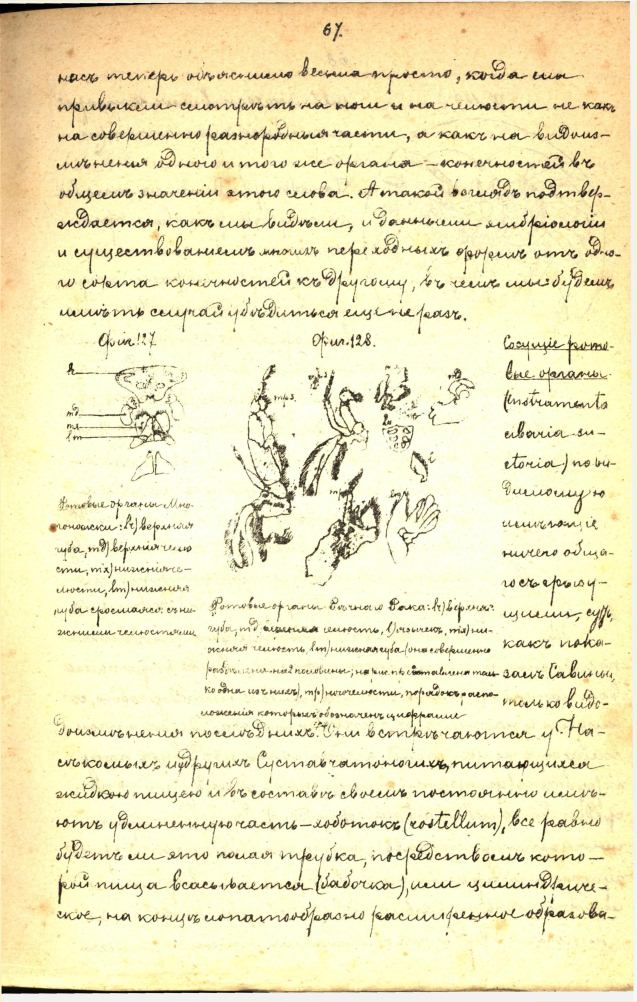 67.
насъ теперь объяснимо весьма просто, когда мы
привыкли смотрѣть на ноги и на челюсти не какъ
на совершенно разнородныя части, а какъ на видоиз-
мѣненія одного и того же органа – конечностей въ
общемъ значеніи этого слова. А такой взглядъ подтвер-
ждается, какъ мы видѣли, и данными эмбріологіи
и существованіемъ многихъ переходныхъ формъ отъ одно-
го сорта конечностей къ другому, въ чемъ мы будемъ
имѣть случай убѣдиться еще не разъ.
Фиг. 127
Фиг. 128.
md
mx
lm
Ротовые органы Мно-
гоножки: lr) верхняя
губа, md) верхнія челю-
сти, mx) нижнія че-
люсти, lm) нижняя
губа сросшаяся съ ни-
жними челюстями
Ротовые органы Рѣчнаго Рака: lr) верхняя
губа, md челюсть, l) язычекъ, mx) ни-
жняя челюсть, lm) нижняя губа (она совершенно
раздѣлена на 2 половины; на рис. представлена толь-
ко одна изъ нихъ), mp) ногочелюсти, порядокъ распо-
ложенія которыхъ обозначенъ цифрами
Сосущіе рото-
вые органы
(instrumenta
cibaria su-
ctoria) по ви-
димому
имѣющіе
ничего обща-
го съ грызу-
щими, суть,
какъ пока-
залъ Савиньи,
только видо-
доизмѣненія послѣднихъ. Они встрѣчаются у На-
сѣкомыхъ и другихъ Суставчатоногихъ, питающихся
жидкою пищею и въ составѣ своемъ постоянно имѣ-
ютъ удлиненную часть – хоботокъ (rostellum), все равно
будетъ ли это полая трубка, посредствомъ кото-
рой пища всасывается (бабочка), или цилиндриче-
ское, на концѣ лопатообразно расширенное образова-